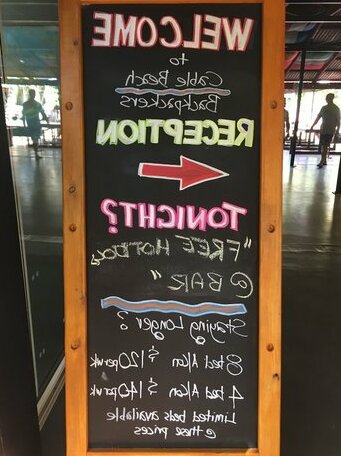 WELCOME
to
Cable Beach
Backpackers
RECEPTION
TONIGHT?
"FREE HOTDOGS
@ BAR"
Staying Longer?
8 bed A/Con $120 per wk
4 bed A/Con $140 per wk
Limited beds available
@ these prices